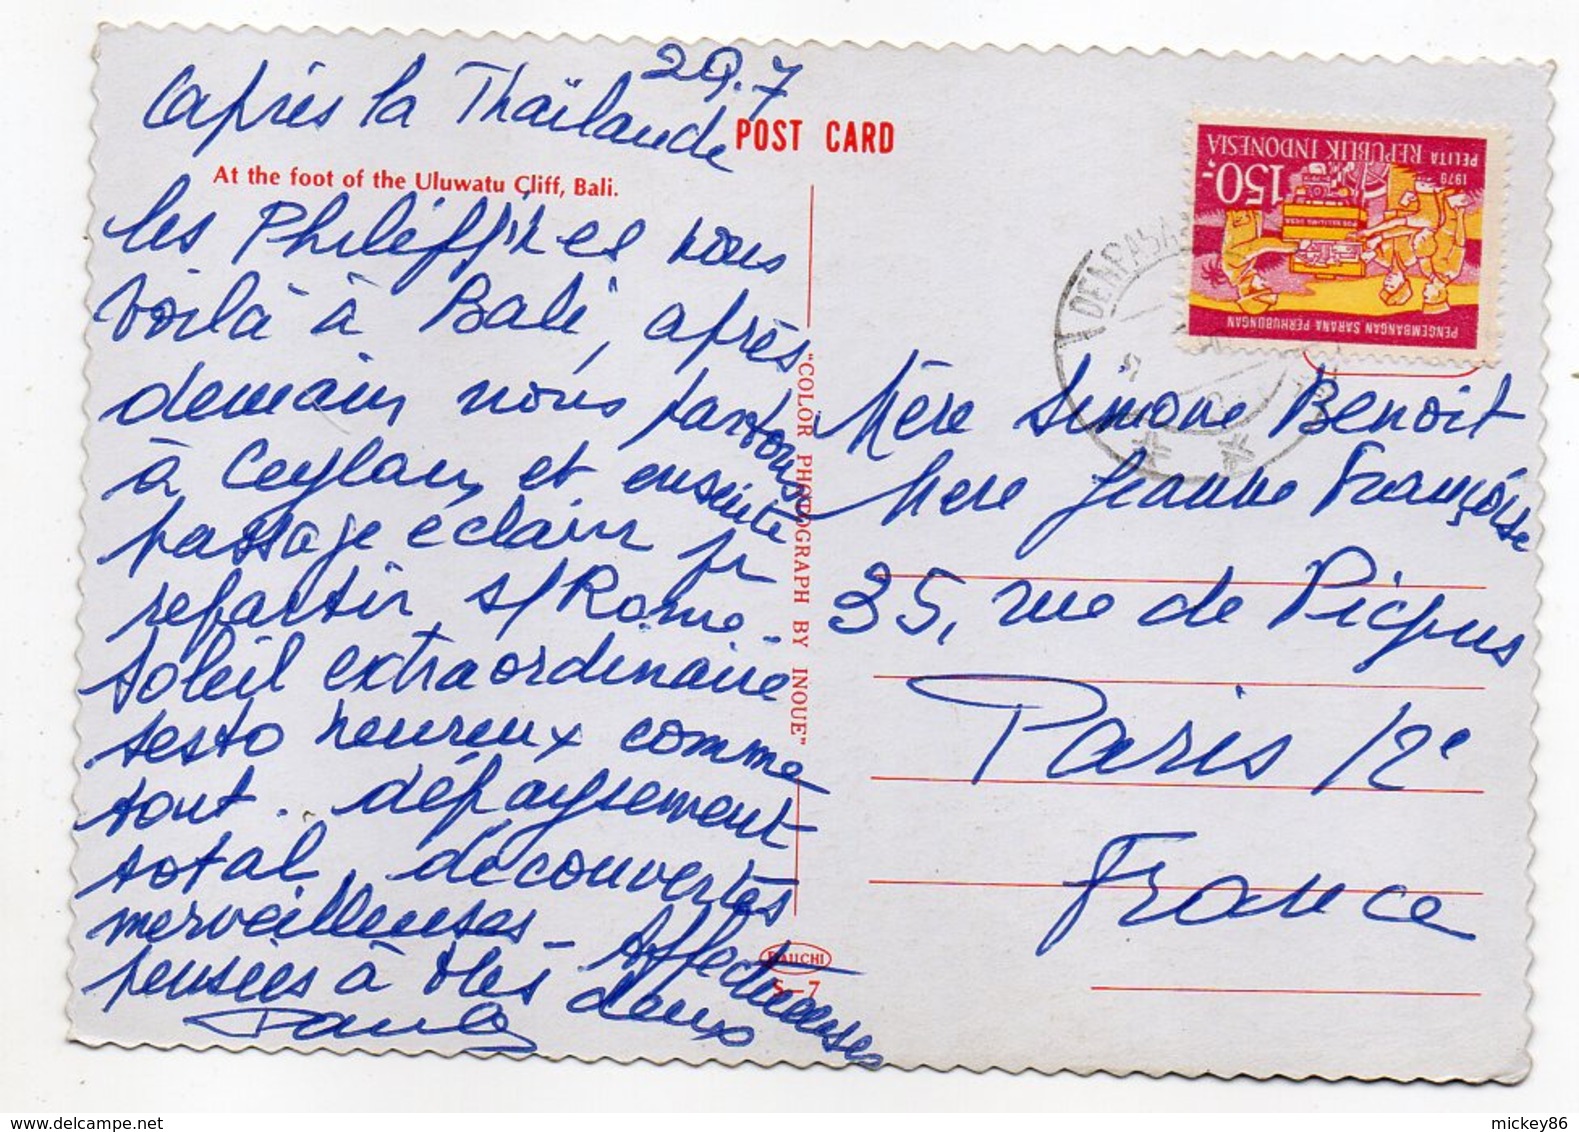 29.7
après la Thaïlande
POST CARD
At the foot of the Uluwatu Cliff, Bali.
les Philippines nous
voilà à Bali, après
demain nous partons
à Ceylan, et ensuite
passage éclair pr
repartir s/ Rome.
Soleil extraordinaire
resto heureux comme
tout. dépaysement
total, découvertes
merveilleuses - Affectueuses
pensées à vs deux
Paula
"COLOR PHOTOGRAPH BY INOUE"
5-7
1976
PELITA REPUBLIK INDONESIA
150,-
PENGEMBANGAN SARANA PERHUBUNGAN
DENPASAR
Mère Simone Benoit
Mere Jeanne Françoise
35, rue de Picpus
Paris 12e
France
www.delcampe.net
mickey86